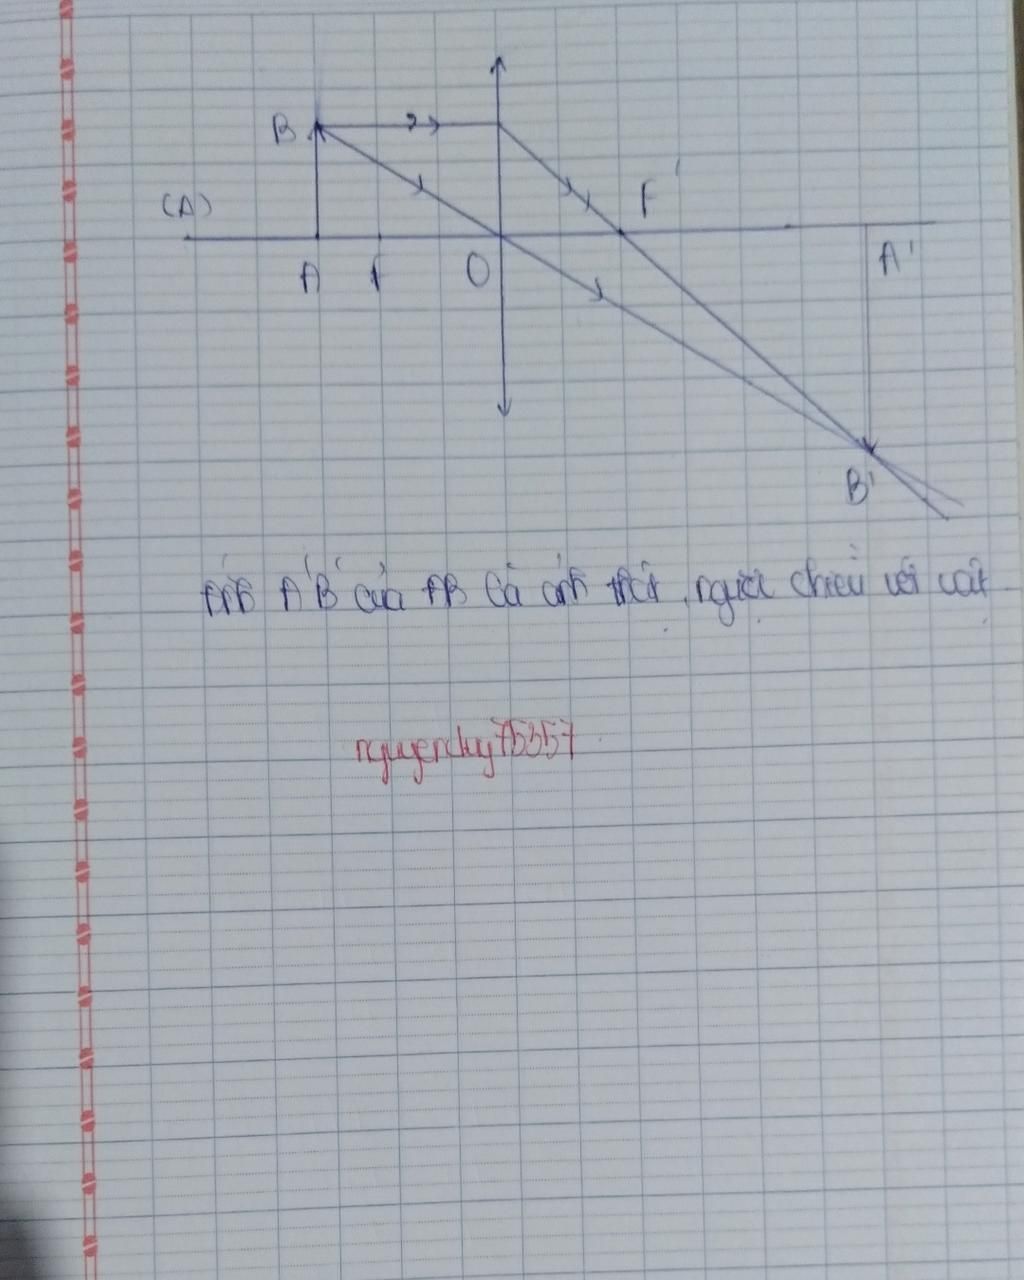 B
F'
(Δ)
A'
A F O
B'
Ảnh A'B' của AB là ảnh thật, ngược chiều với vật
nguyenduy75357